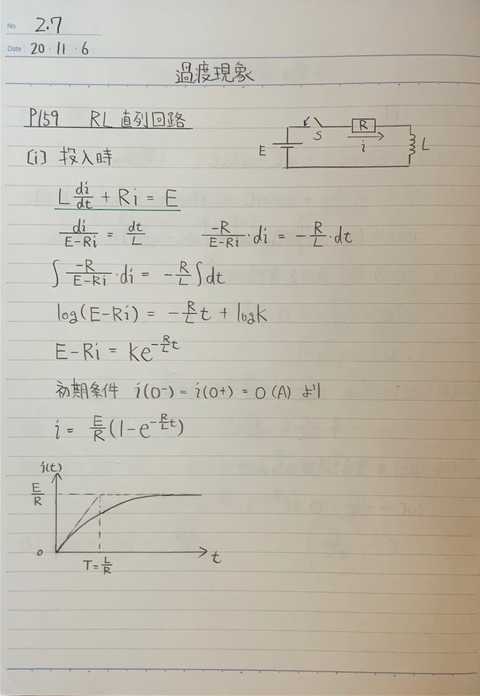 No. 2.7
Date 20・11・6
過渡現象
P159 RL直列回路
E S R i L
(i) 投入時
L di/dt + Ri = E
di/(E-Ri) = dt/L   -R/(E-Ri)・di = -R/L・dt
∫ -R/(E-Ri)・di = -R/L ∫dt
log(E-Ri) = -R/L t + logk
E-Ri = ke^(-R/L t)
初期条件 i(0-) = i(0+) = 0 (A) より
i = E/R (1-e^(-R/L t))
i(t)
E/R
0
T = L/R
t